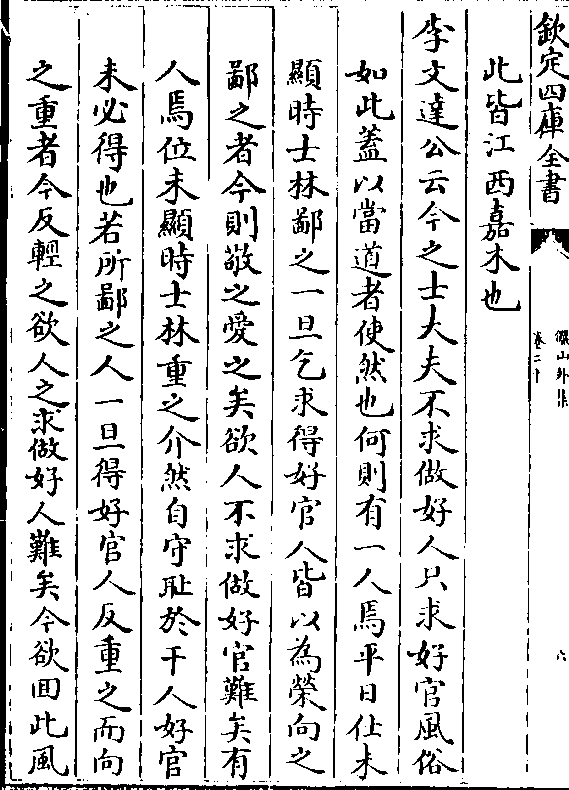 欽定四庫全書
儼山外集
卷二十
六
此皆江西嘉木也
李文達公云今之士大夫不求做好人只求好官風俗
如此蓋以當道者使然也何則有一人焉平日仕未
顯時士林鄙之一旦乞求得好官人皆以為榮向之
鄙之者今則敬之愛之矣欲人不求做好官難矣有
人焉位未顯時士林重之介然自守耻於干人好官
未必得也若所鄙之人一旦得好官人反重之而向
之重者今反輕之欲人之求做好人難矣今欲回此風